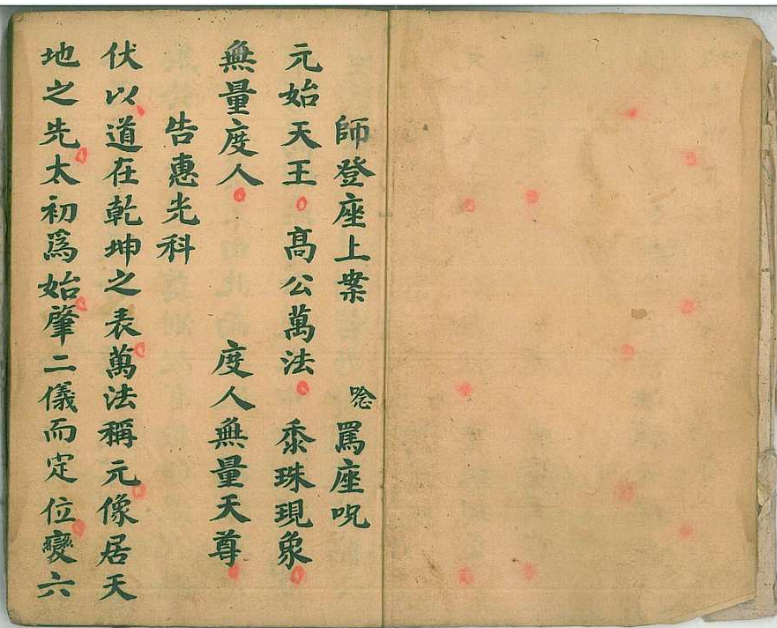 師登座上案　唸罵座呪
元始天王高公萬法黍珠現象
無量度人　度人無量天尊
告惠光科
伏以道在乾坤之表萬法稱元像居天
地之先太初爲始肇二儀而定位變六